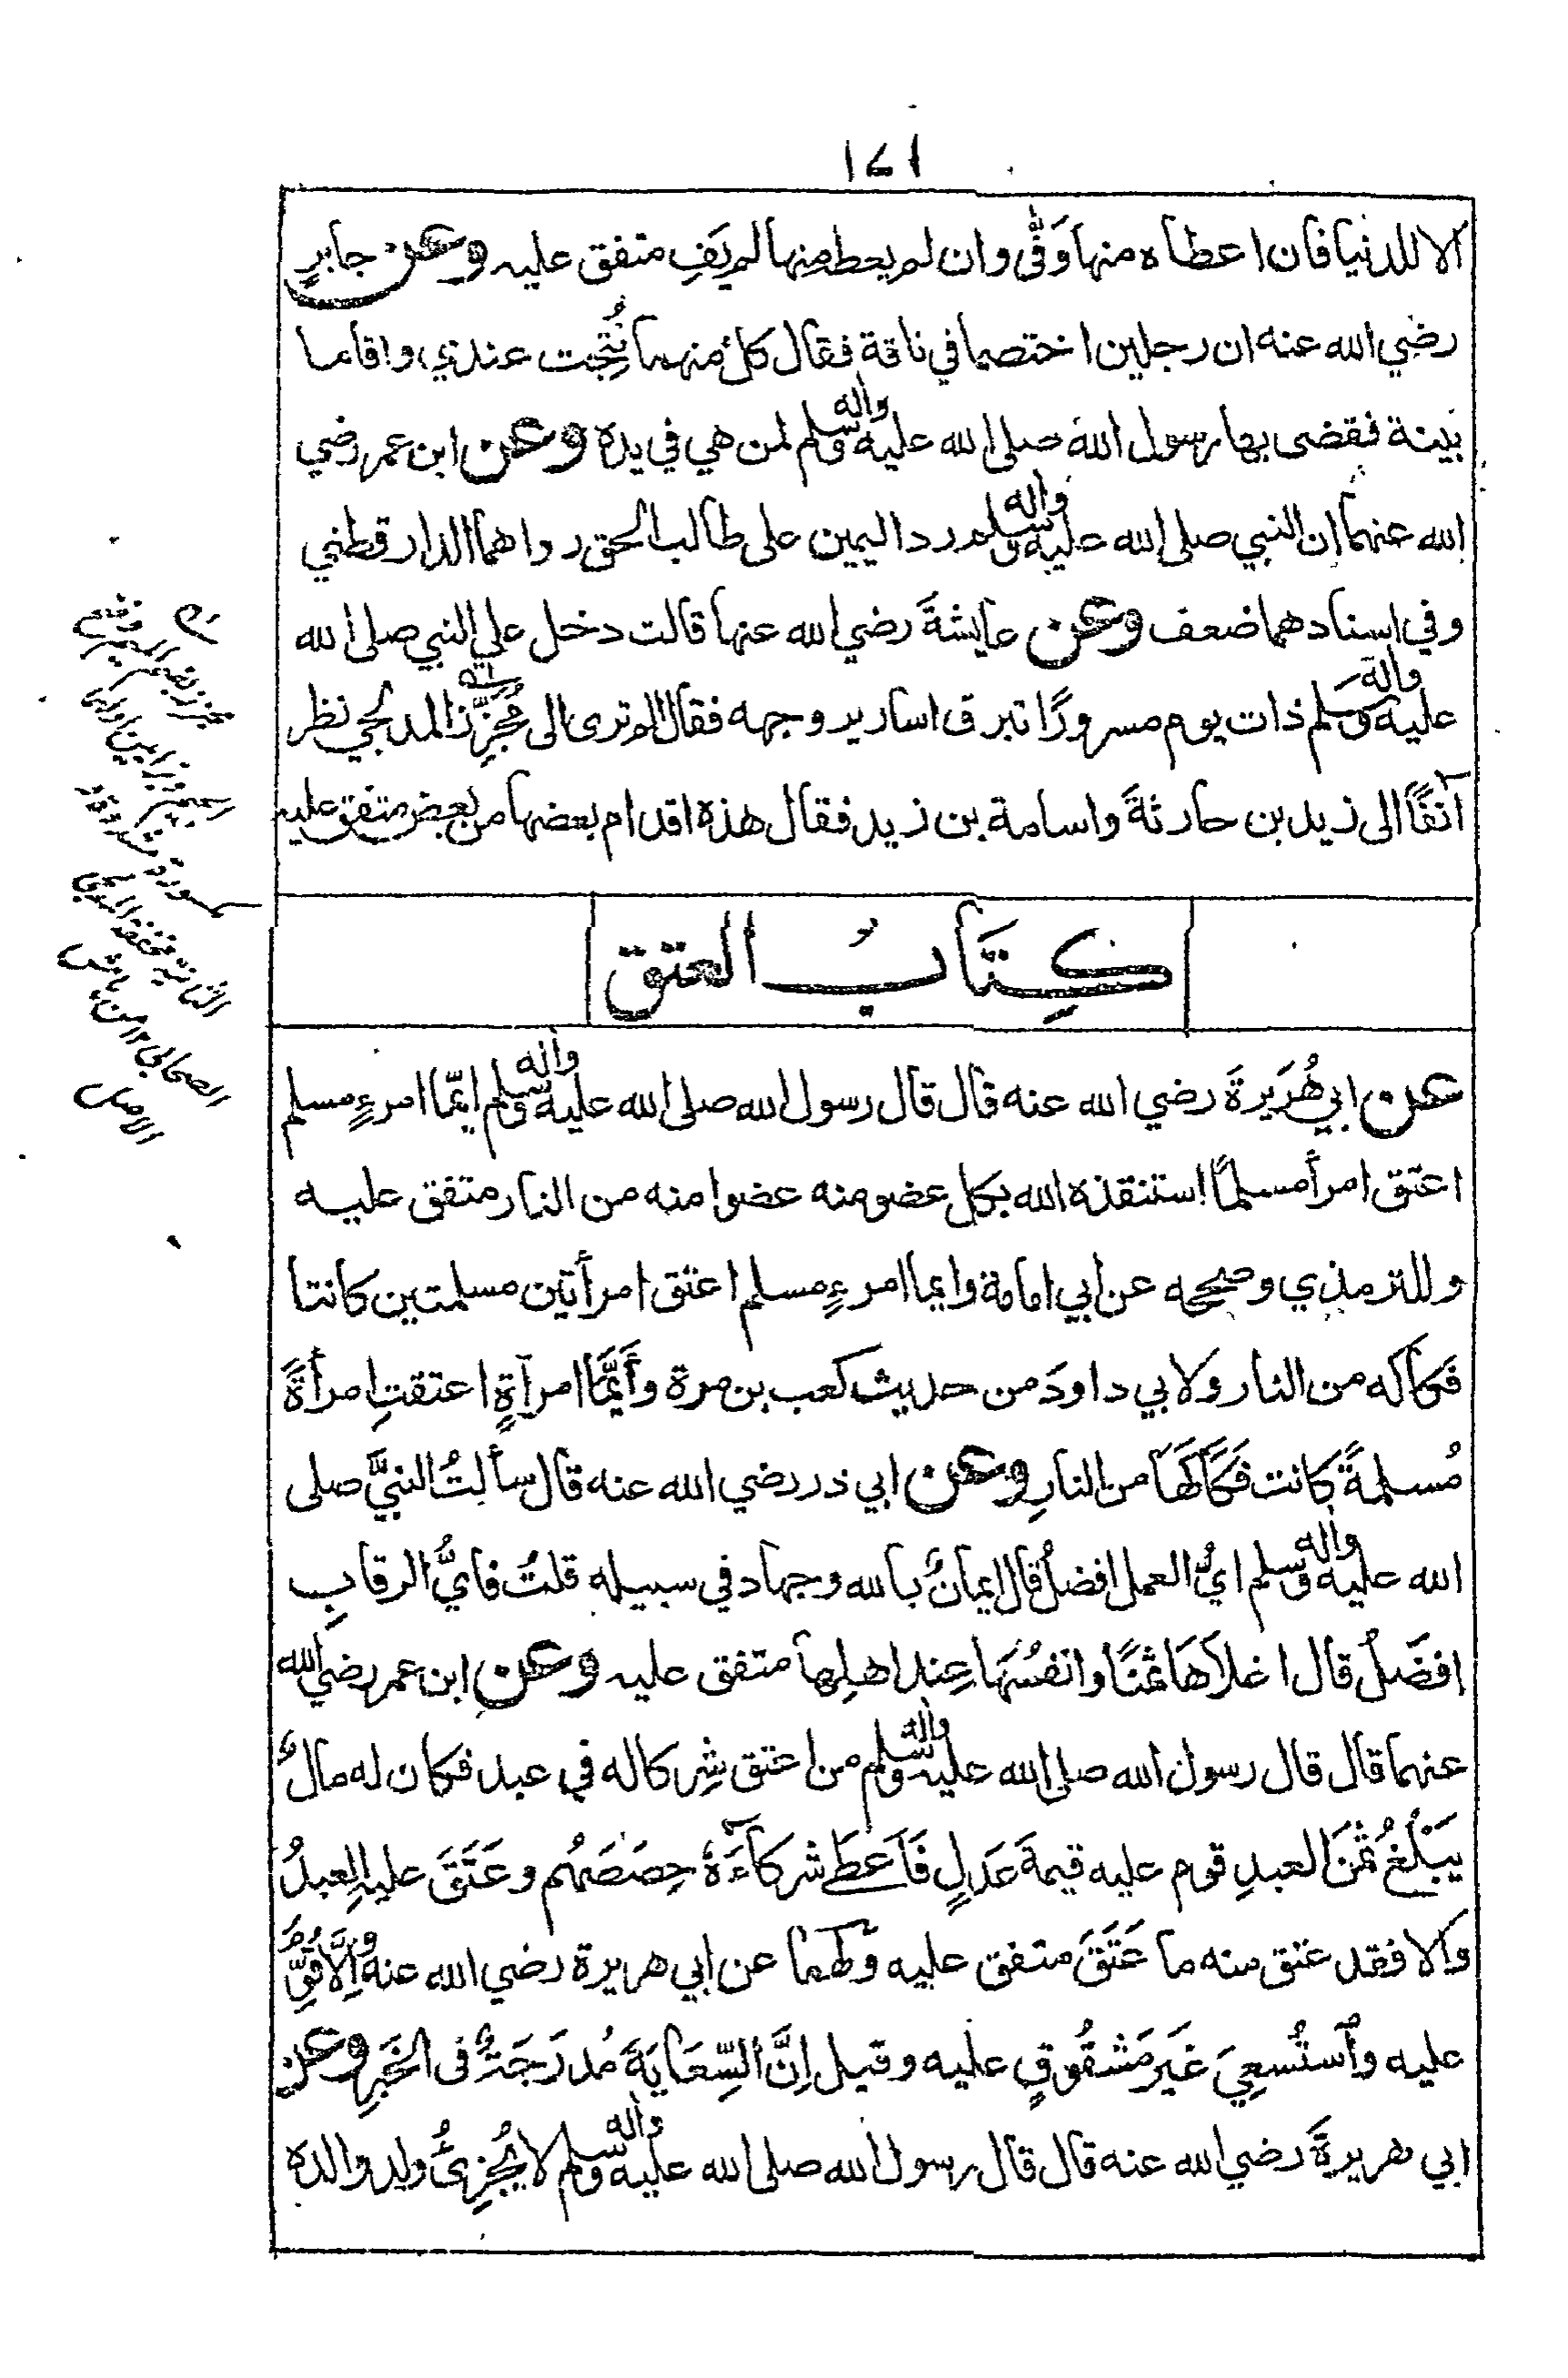 ١٧١
الا للدنيا فان اعطاه منها وَفّٰى وان لم يعط منها لم يَفِ متفق عليه وعن جابرٍ
رضي الله عنه ان رجلين اختصما في ناقة فقال كلٌ منهما نُتِجت عندي واقاما
بينة فقضى بها رسول الله صلى الله عليه واٰله وسلم لمن هي في يده وعن ابن عمر رضي
الله عنهما ان النبي صلى الله عليه واٰله وسلم رد اليمين على طالب الحق رواهما الدارقطني
وفي اسنادهما ضعف وعن عايشةَ رضي الله عنها قالت دخل علي النبي صلى الله
عليه واٰله وسلم ذات يوم مسرورًا تبرق اسارير وجهه فقال الم ترى الى مُجَزِّز المدلجي نظر
آنفًا الى زيد بن حارثةَ واسامة بن زيد فقال هذه اقدام بعضها من بعض متفق عليه
كِتَابُ العتق
عن ابي هُرَيرةَ رضي الله عنه قال قال رسول الله صلى الله عليه واٰله وسلم ايّما امرءٍ مسلم
اعتق امرأ مسلمًا استنقذه الله بكل عضو منه عضوا منه من النار متفق عليه
وللترمذي وصححه عن ابي امامة وايما امرءٍ مسلم اعتق امرأتين مسلمتين كانتا
فكاكه من النار ولابي داودَ من حديث كعب بن مرة وأَيَّما امرأةٍ اعتقتِ امرأةً
مُسلمةً كانت فَكَاكَهَا من النارِ وعن ابي ذر رضي الله عنه قال سألتُ النبيَّ صلى
الله عليه واٰله وسلم ايُّ العمل افضلُ قال ايمانٌ بالله وجهاد في سبيله قلتُ فايُّ الرقابِ
افضَلُ قال اغلاَهَا ثمنًا وانفسُهَا عِند اهلِها متفق عليه وعن ابن عمر رضي الله
عنهما قال قال رسول الله صلى الله عليه واٰله وسلم من اعتق شِركا له في عبد فكان له مالٌ
يَبْلُغُ ثمَنَ العبدِ قوم عليه قيمةَ عَدلٍ فَاَعطَى شركَآءَهُ حِصَصَهُم وعَتَقَ عليهِ العبدُ
والا فقد عتق منه ما عَتَقَ متفق عليه ولهما عن ابي هريرة رضي الله عنه وَاِلَّا قُوِّمَ
عليه وٱستُسعِيَ غَيرَ مَشقُوقٍ عليه وقيل اِنَّ السِّعَايَةَ مُدرَجَةٌ فى الخَبرِ وعن
ابي هريرةَ رضي الله عنه قال قال رسول الله صلى الله عليه واٰله وسلم لا يُجْزِئُ ولد والده